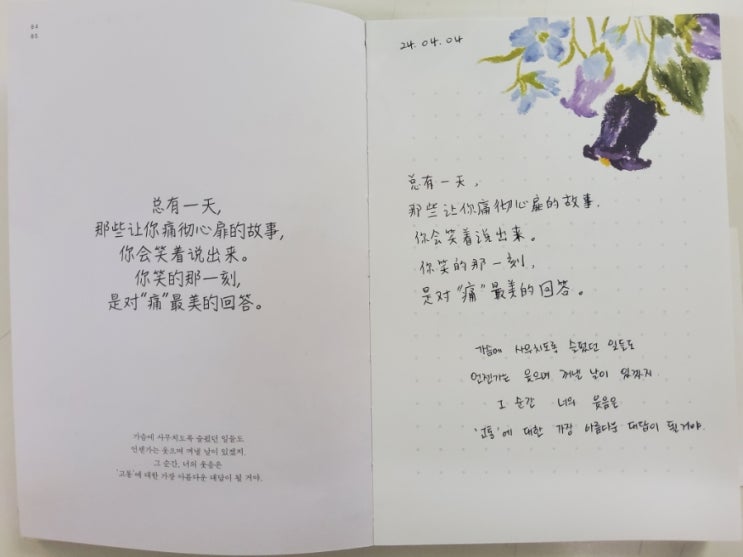 04
05
总有一天,
那些让你痛彻心扉的故事,
你会笑着说出来。
你笑的那一刻,
是对“痛”最美的回答。
가슴에 사무치도록 슬펐던 일들도
언젠가는 웃으며 꺼낼 날이 있겠지.
그 순간, 너의 웃음은
'고통'에 대한 가장 아름다운 대답이 될 거야.
24.04.04
总有一天,
那些让你痛彻心扉的故事.
你会笑着说出来。
你笑的那一刻,
是对“痛”最美的回答。
가슴에 사무치도록 슬펐던 일들도
언젠가는 웃으며 꺼낼 날이 있겠지
그 순간 너의 웃음은
'고통'에 대한 가장 아름다운 대답이 될 거야.